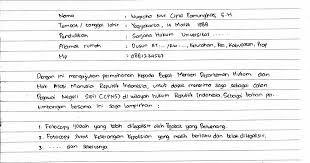 Nama : Nugroho Nur Cipto Pamungkas, S.H
Tempat / tanggal lahir : Yogyakarta, 14 Maret 1988
Pendidikan : Sarjana Hukum Universitas .....
Alamat rumah : Dusun RT.../RW..., Kelurahan, Kec, Kabupaten, Prop
Hp : 0881234567
Dengan ini mengajukan permohonan kepada Bapak Menteri Departemen Hukum dan
Hak Asasi Manusia Republik Indonesia, untuk dapat menerima saya sebagai calon
Pegawai Negeri Sipil (CPNS) di wilayah hukum Republik Indonesia. Sebagai bahan per-
timbangan bersama ini saya lampirkan :
1. Fotocopy ijazah yang telah dilegalisir oleh Pejabat yang Berwenang.
2. Fotocopy Surat Keterangan Kepolisian yang masih berlaku dan telah dilegalisir.
3. ..... dan seterusnya.